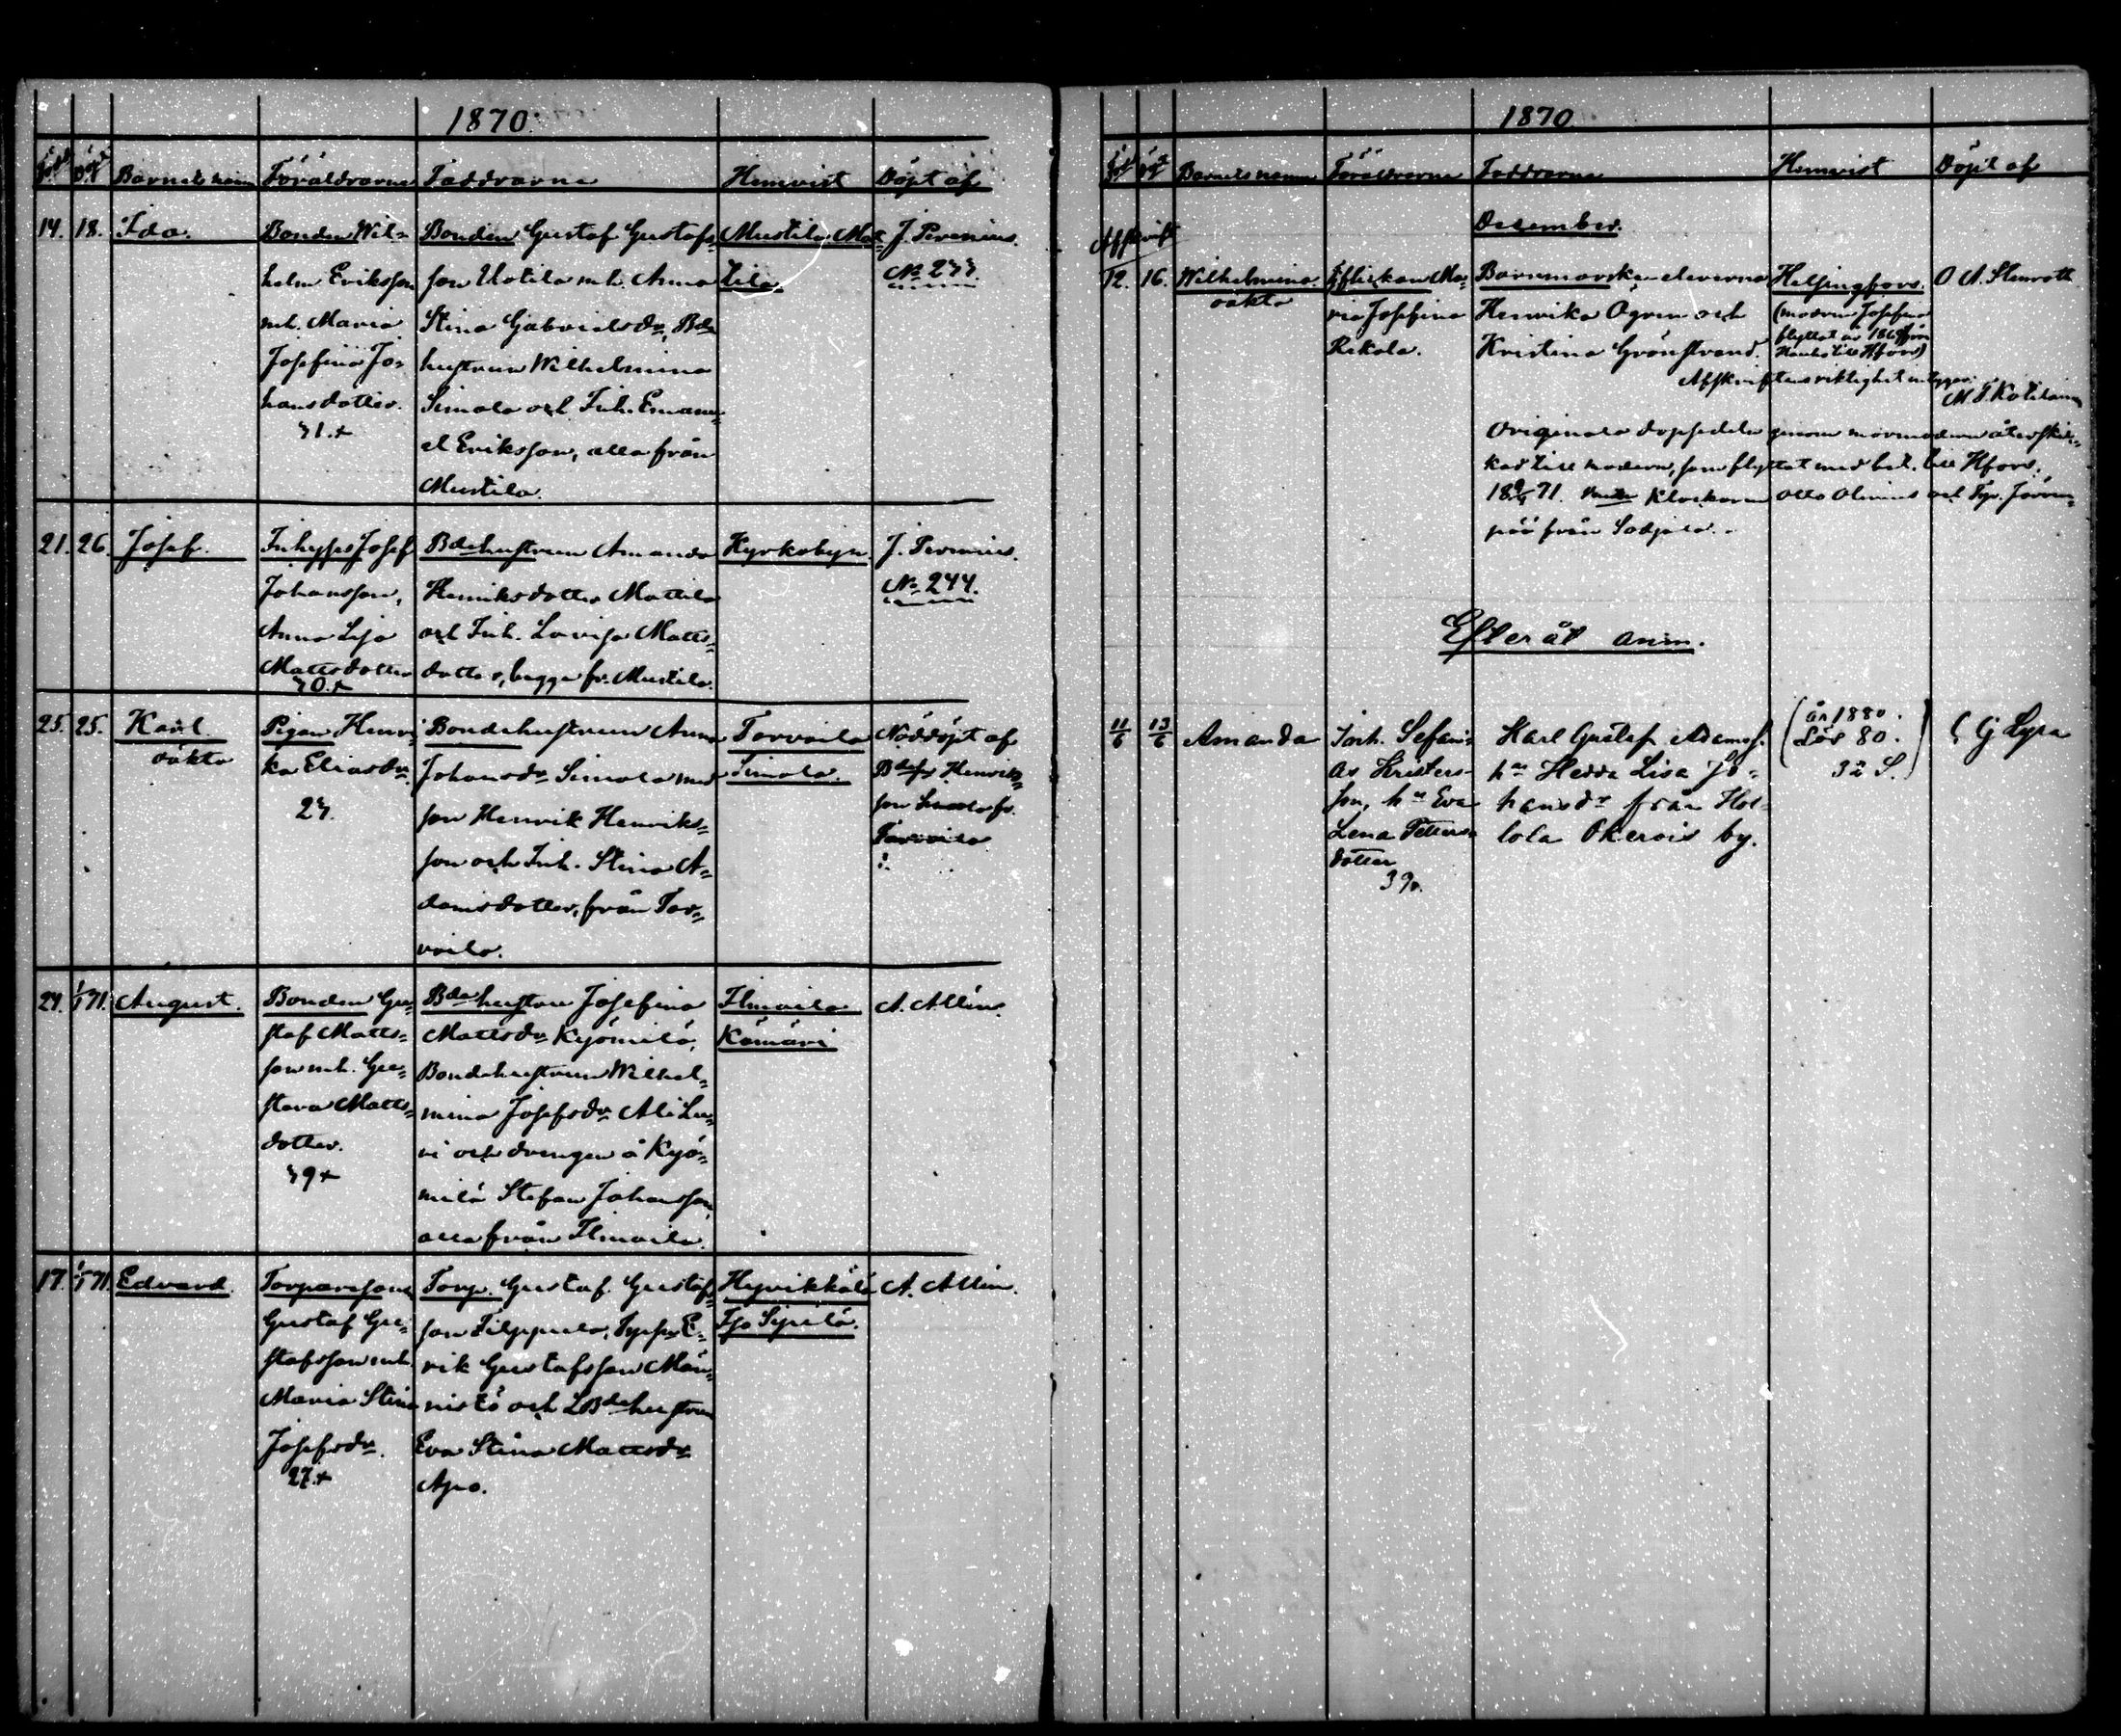 1870.
Född Döpt Barnets namn Föräldrarne Faddrarne Hemvist Döpt af
14. 18. Ida.
Bonden Wil-
helm Eriksson
m.h. Maria
Josefina Jo-
hansdotter.
31.+
Bonden Gustaf Gustafs-
son Uotila m.h. Anna
Stina Gabrielsdr, Bde
hustrun Wilhelmina
Simola och Inh. Emanu-
el Eriksson, alla från
Mustila.
Mustila Mat-
tila
J. Perenius.
No 233.
21. 26. Josef.
Inhyses Josef
Johansson,
Anna Lisa
Mattsdotter
30.+
Bdehustrun Amanda
Henriksdotter Mattila
och Inh. Lovisa Matts-
dotter, begge fr. Mustila.
Kyrkobyn.
J. Perenius.
No 244.
25. 25. Karl
oäkta
Pigan Henri-
ka Eliasdr.
23.
Bondehustrun Anna
Johansdr Simola med
son Henrik Henriks-
son och Inh. Stina A-
damsdotter, från Tor-
voila.
Torvoila
Simola.
Nöddöpt af
Bdesn Henriks-
son Simola fr.
Torvoila
24. 1/1 71. August.
Bonden Gu-
staf Matts-
son m.h. Gu-
stava Matts-
dotter.
39+
Bdehustru Josefina
Mattsdr Kyömilä,
Bondehustrun Wilhel-
mina Josefsdr Ali Lu-
vi och drengen å Kyö-
milä Stefan Johansson,
alla från Ilmoila.
Ilmoila
Kömäri
A. Allén.
17. 1/1 71. Edvard.
Torparesonen
Gustaf Gu-
stafsson m.h.
Maria Stina
Josefsdr.
27.+
Torp. Gustaf Gustafs-
son Filppula, Tpson E-
rik Gustafsson Män-
nistö och LBdehustrun
Eva Stina Mattsdr
Apo.
Hyvikkälä
Iso Sipilä.
A. Allén.
1870
Född Döpt Barnets namn Föräldrarne Faddrarne Hemvist Döpt af
December.
Afskrift
12. 16. Wilhelmina.
oäkta
Flickan Ma-
ria Josefina
Rekola.
Barnmorske eleverna
Henrika Ogren och
Kristina Grönstrand.
Helsingfors.
(modren Josefina
flyttat år 1869 från
Hauho till Hfors)
O A. Stenroth
Afskriftens riktighet intygar:
M. F. Kotilainen
Originala dopsedeln genom mormodren återskic-
kad till modren, som flyttat med bet. till Hfors.
18 71. Klockaren Otto Olenius och Tp. Järven-
pää från Sodjala.-
Efteråt anm.
11/6 13/6 Amanda
Inh. Sefani-
as Kristers-
son, hu Eva
Lena Petters-
dotter
39.
Karl Gustaf Adamss.
hu Hedda Lisa Jo-
hansdr från Hol-
lola Okerois by.
(år 1880.
Lös 80.
32 S.)
G Lyra